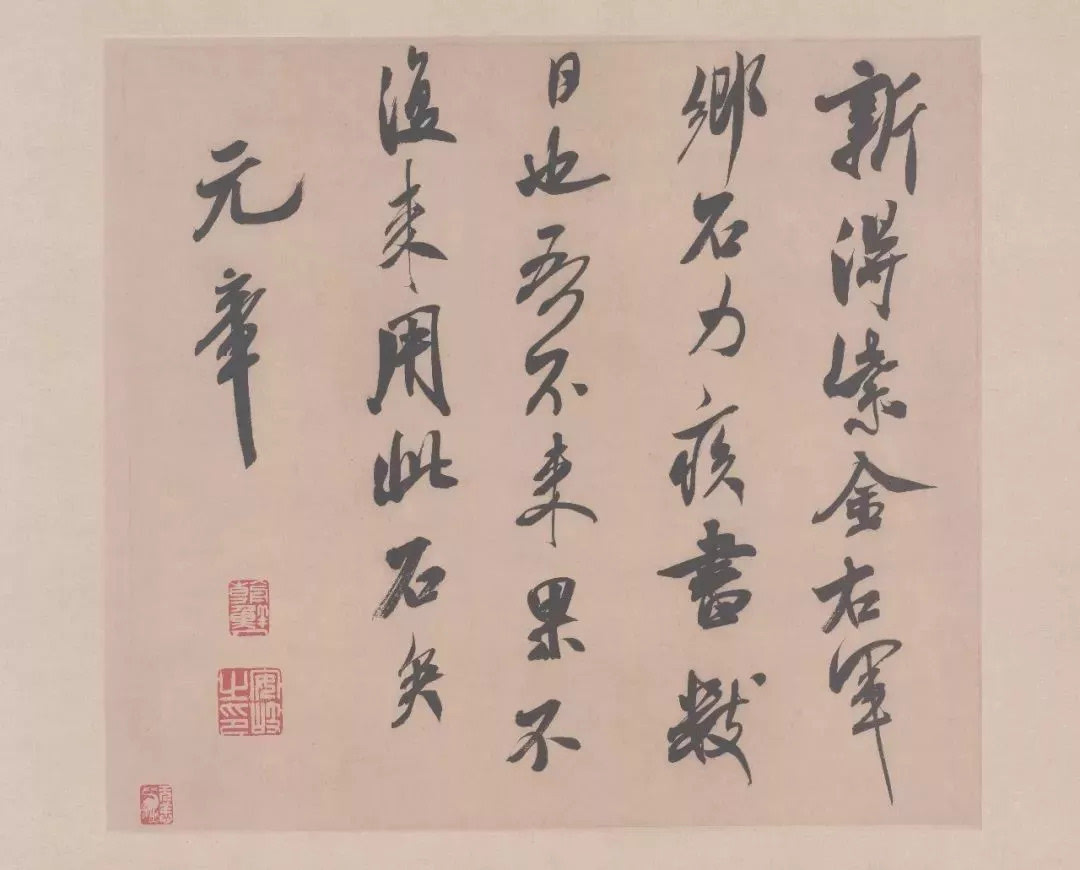 新得紫金右軍
鄉石力疾書數
日也吾不來果不
復来用此石矣
元章